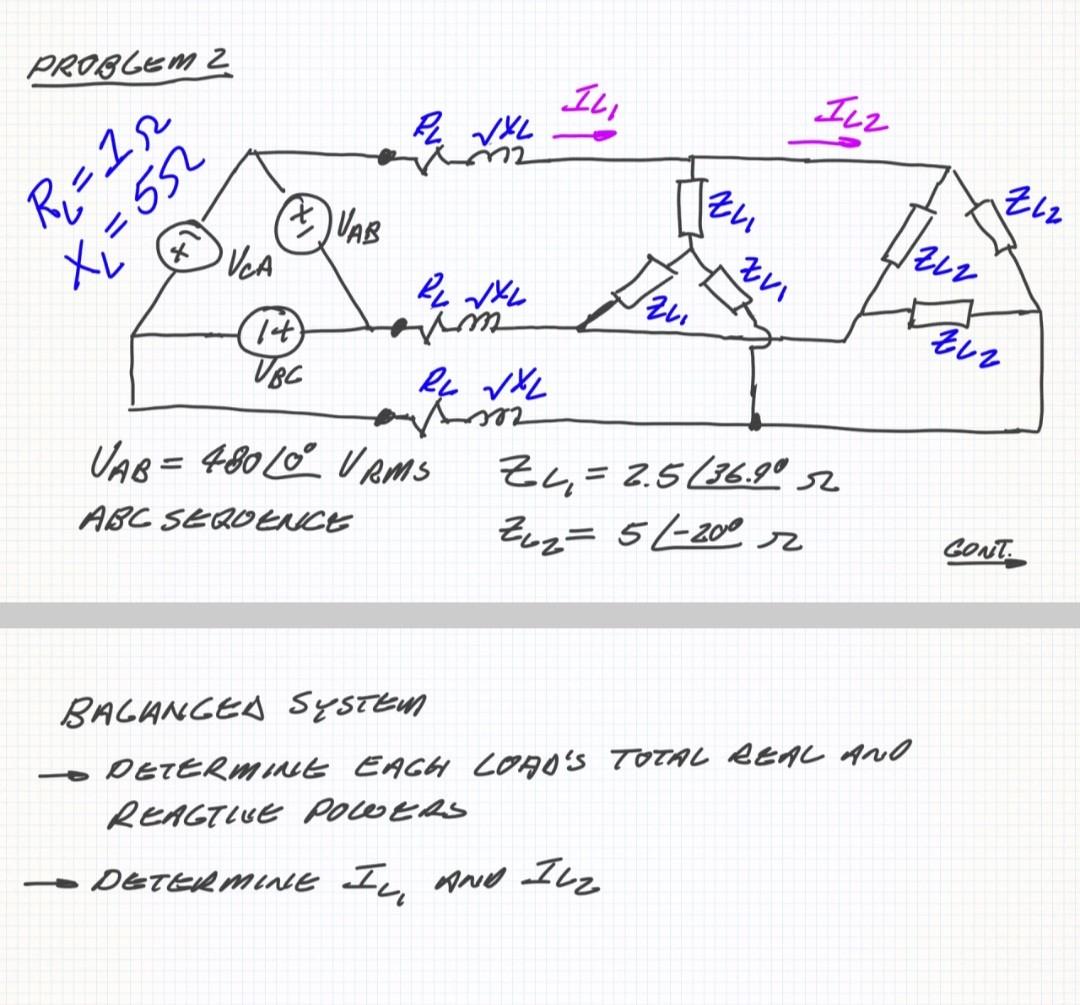 PROBLEM 2
RL = 1Ω
XL = 5Ω
RL jXL
IL1
IL2
VCA
VAB
ZL1
ZL1
ZL1
ZL2
ZL2
ZL2
RL jXL
VBC
RL jXL
VAB = 480∠0° VRMS
ZL1 = 2.5∠36.9° Ω
ABC SEQUENCE
ZL2 = 5∠-20° Ω
CONT.
BALANCED SYSTEM
→ DETERMINE EACH LOAD'S TOTAL REAL AND
REACTIVE POWERS
→ DETERMINE IL1 AND IL2